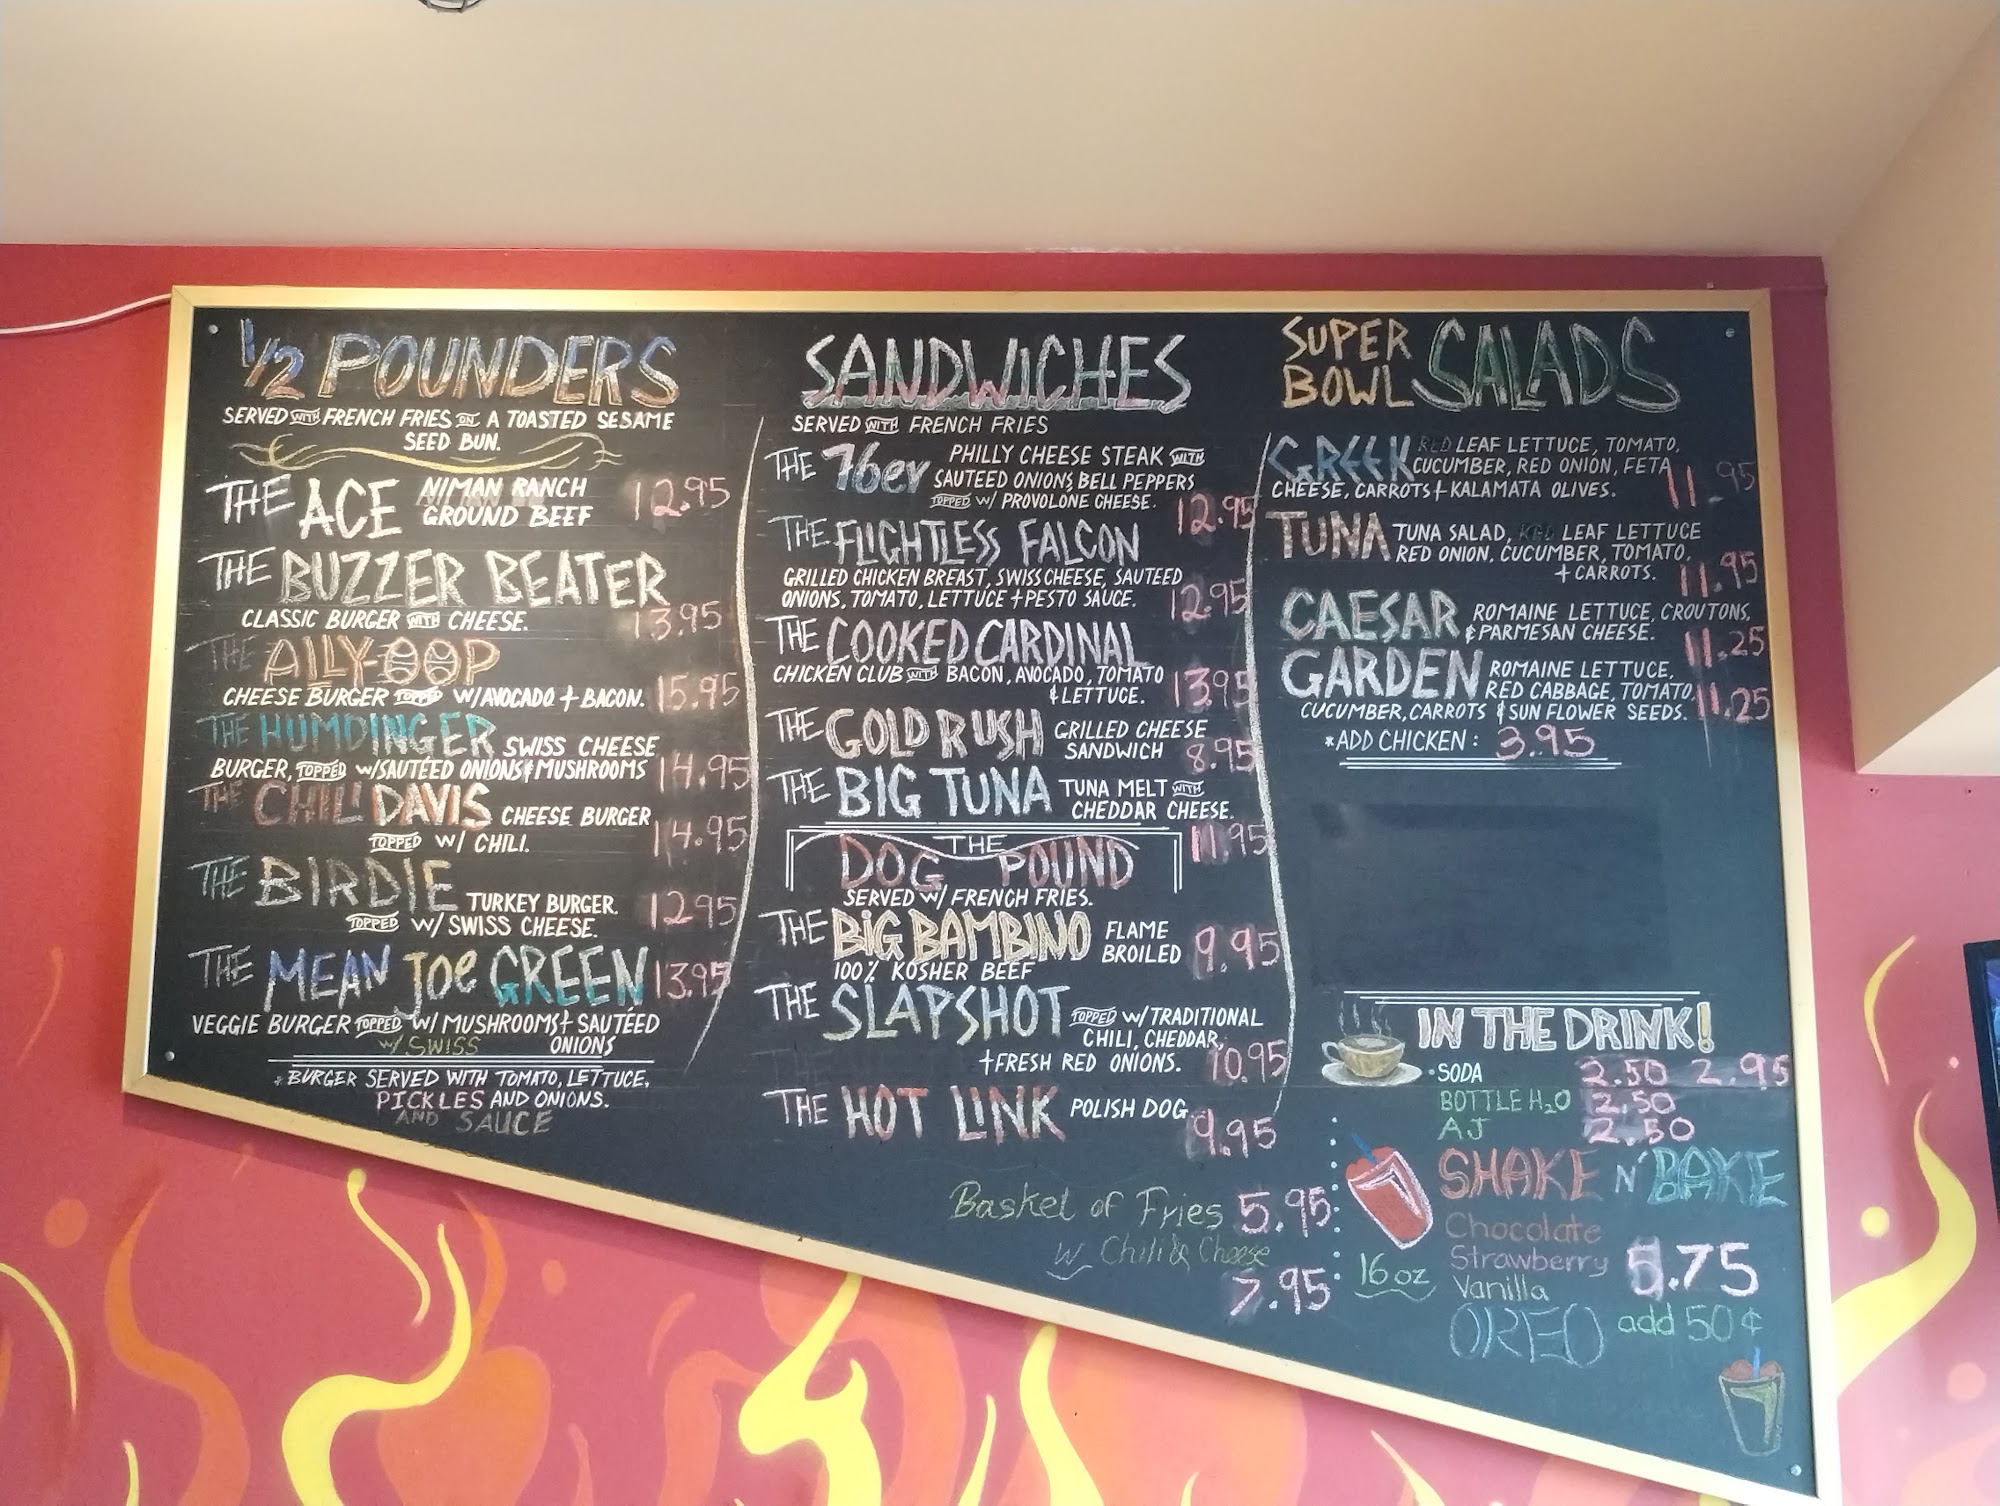 1/2 POUNDERS
SERVED WITH FRENCH FRIES ON A TOASTED SESAME
SEED BUN.
THE ACE NIMAN RANCH
GROUND BEEF 12.95
THE BUZZER BEATER
CLASSIC BURGER WITH CHEESE. 13.95
THE ALLY-OOP
CHEESE BURGER TOPPED W/AVOCADO + BACON. 15.95
THE HUMDINGER SWISS CHEESE
BURGER, TOPPED W/SAUTÉED ONIONS & MUSHROOMS 14.95
THE CHILI DAVIS CHEESE BURGER
TOPPED W/ CHILI. 14.95
THE BIRDIE TURKEY BURGER.
TOPPED W/ SWISS CHEESE. 12.95
THE MEAN JOE GREEN 13.95
VEGGIE BURGER TOPPED W/ MUSHROOMS + SAUTÉED
W/ SWISS ONIONS
*BURGER SERVED WITH TOMATO, LETTUCE,
PICKLES AND ONIONS.
AND SAUCE
SANDWICHES
SERVED WITH FRENCH FRIES
THE 76er PHILLY CHEESE STEAK WITH
SAUTEED ONIONS, BELL PEPPERS
TOPPED W/ PROVOLONE CHEESE. 12.95
THE FLIGHTLESS FALCON
GRILLED CHICKEN BREAST, SWISS CHEESE, SAUTEED
ONIONS, TOMATO, LETTUCE + PESTO SAUCE. 12.95
THE COOKED CARDINAL
CHICKEN CLUB WITH BACON, AVOCADO, TOMATO
& LETTUCE. 13.95
THE GOLD RUSH GRILLED CHEESE
SANDWICH 8.95
THE BIG TUNA TUNA MELT WITH
CHEDDAR CHEESE.
11.95
THE
DOG POUND
SERVED W/ FRENCH FRIES.
THE BIG BAMBINO FLAME
BROILED 9.95
100% KOSHER BEEF
THE SLAPSHOT TOPPED W/TRADITIONAL
CHILI, CHEDDAR,
+ FRESH RED ONIONS. 10.95
THE HOT LINK POLISH DOG
9.95
Basket of Fries 5.95
w/ Chili & Cheese
7.95
SUPER
BOWL SALADS
GREEK RED LEAF LETTUCE, TOMATO,
CUCUMBER, RED ONION, FETA
CHEESE, CARROTS + KALAMATA OLIVES. 11.95
TUNA TUNA SALAD, RED LEAF LETTUCE
RED ONION, CUCUMBER, TOMATO,
+ CARROTS. 11.95
CAESAR ROMAINE LETTUCE, CROUTONS,
& PARMESAN CHEESE. 11.25
GARDEN ROMAINE LETTUCE,
RED CABBAGE, TOMATO,
CUCUMBER, CARROTS & SUN FLOWER SEEDS. 11.25
*ADD CHICKEN: 3.95
IN THE DRINK!
• SODA 2.50 2.95
BOTTLE H2O 2.50
AJ 2.50
SHAKE N' BAKE
Chocolate
Strawberry 5.75
16 oz Vanilla
OREO add 50¢